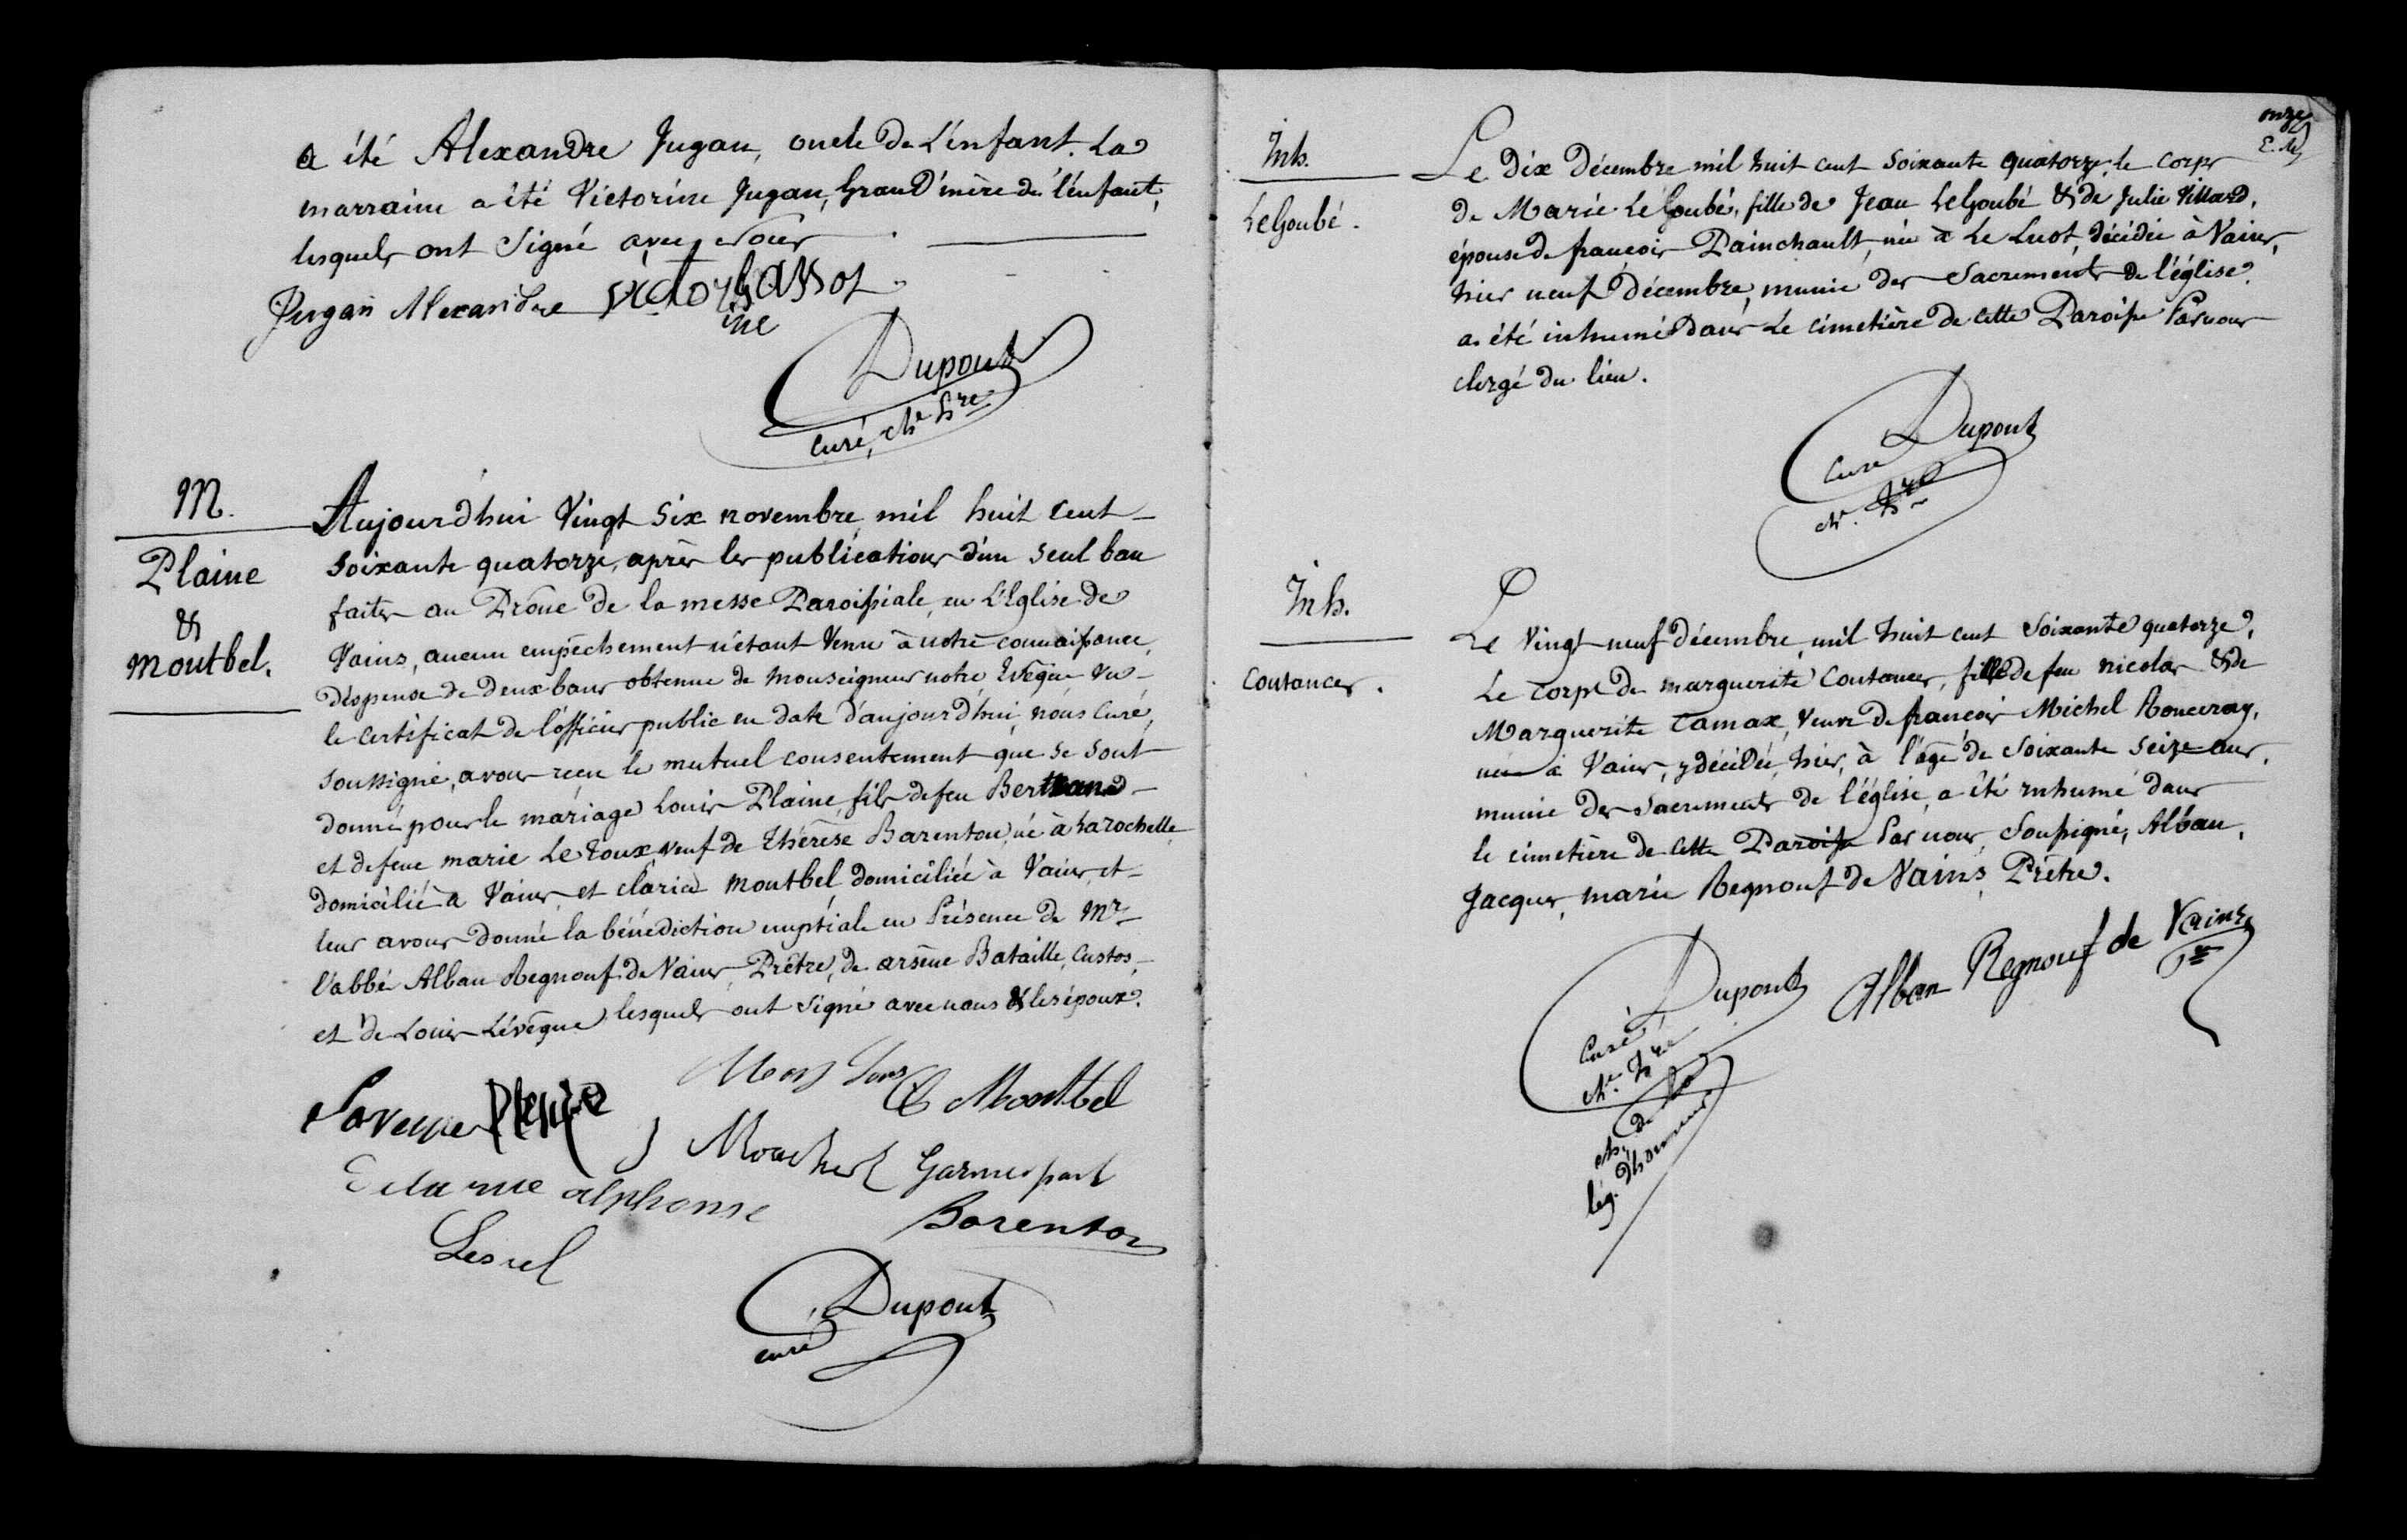 a été Alexandre Jugan, oncle de L'enfant. La
marraine a été Victorine Jugan, Grand'mère de l'enfant,
lesquels ont Signé avec nous
Jugan Alexandre victor hassot
ine
Dupont
curé, ch. h.re
M.
Plaine
&
Montbel.
Aujourd'hui Vingt Six novembre mil huit cent
soixante quatorze, après les publications d'un seul ban
faites au Prône de la messe Paroissiale, en L'Eglise de
Vains, aucun empêchement n'étant Venu à notre connaissance,
dispense de deux bans obtenue de Monseigneur notre Evêque Vu
le certificat de l'officier public en date d'aujourd'hui, nous Curé,
soussigné, avons reçu le mutuel consentement que se sont
donné pour le mariage Louis Plaine, fils de feu Bertrand
et de feue marie LeRoux, veuf de Thérèse Barenton, né à Larochelle
domicilié à Vains, et claria Montbel domiciliée à Vains, et
leur avons donné la bénédiction nuptiale en Présence de Mr
l'abbé Alban Regnouf de Vains, Prêtre, de arsène Bataille, Custos,
et de Louis Lévêque lesquels ont signé avec nous & les époux.
C Montbel
Delarue alphonse
Barenton
Lesrel
Dupont
curé
onze
Inh.
LeGoubé.
Le Dix Décembre mil huit cent soixante quatorze, le corps
de Marie LeGoubé, fille de Jean LeGoubé & de Julie Villard,
épouse de françois Painchault, née à Le Luot, décédée à Vains,
hier neuf Décembre, munie des Sacrements de l'église,
a été inhumé dans Le cimetière de cette Paroisse Par nous
clergé du lieu.
Dupont
Curé
ch. h.re
Inh.
Coutances.
Le Vingt neuf décembre, mil huit cent Soixante quatorze,
Le corps de marguerite Coutances, fille de feu nicolas & de
Marguerite Tamax, Veuve de françois Michel Roncevray,
née à Vains, y décédée, hier, à l'âge de Soixante Seize ans,
munie des Sacrements de l'église, a été inhumé dans
le cimetière de cette Paroisse Par nous, Soussigné, Alban,
Jacques, marie Regnouf de Vains, Prêtre.
Dupont Alban Regnouf de Vains
Curé ptre
ch. h.re
ch. de la
lég. d'honneur